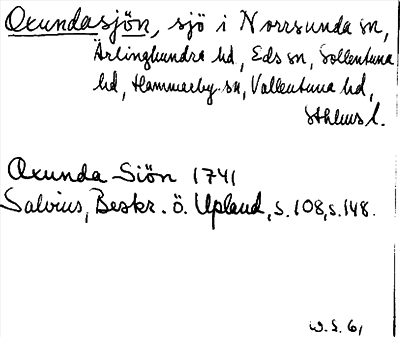 Oxundasjön, sjö i Norrsunda sn,
Ärlinghundra hd, Eds sn, Sollentuna
hd, Hammarby sn, Vallentuna hd,
Sthlms l.
Oxunda Siön 1741
Salvius, Beskr. ö. Upland, s. 108, s. 148.